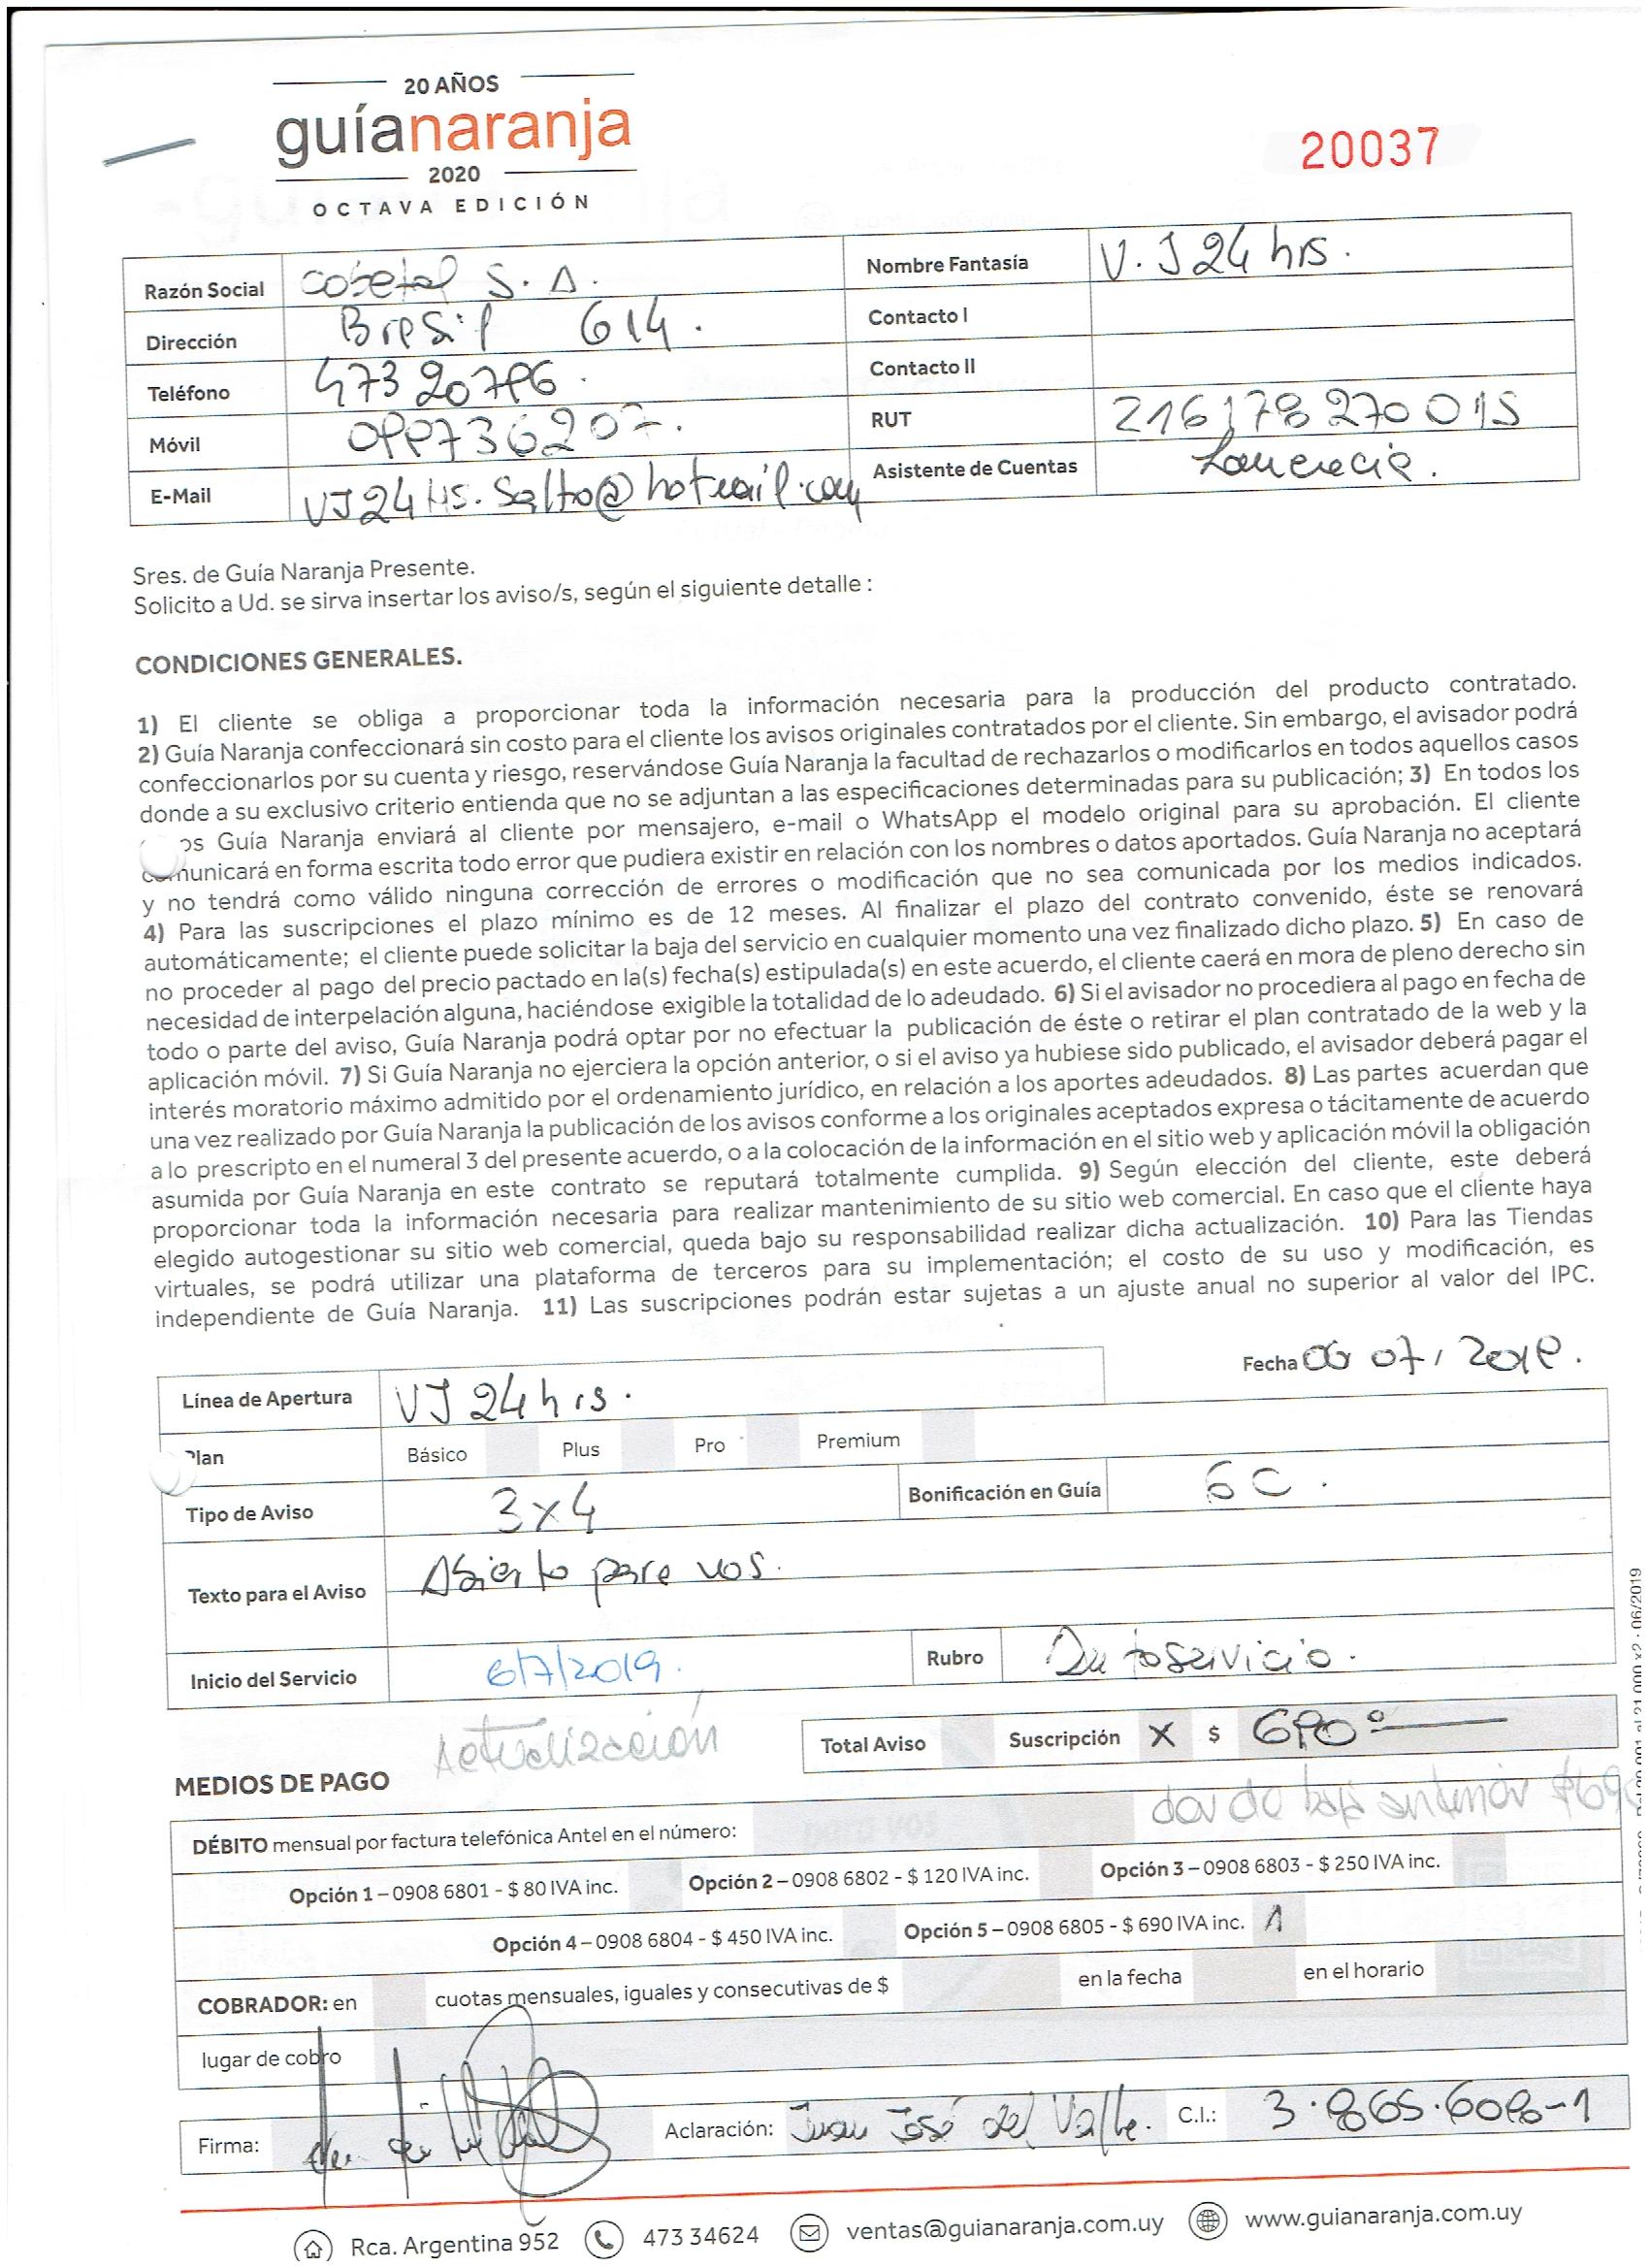 20 AÑOS
guíanaranja
2020
OCTAVA EDICIÓN
20037
Razón Social cobetal S. A. Nombre Fantasía V. J 24 hrs.
Dirección Brasil 614. Contacto I
Teléfono 473 20796. Contacto II
Móvil 099736207. RUT 216178270015
E-Mail VJ24Hs.Salto@hotmail.com Asistente de Cuentas
Sres. de Guía Naranja Presente.
Solicito a Ud. se sirva insertar los aviso/s, según el siguiente detalle :
CONDICIONES GENERALES.
1) El cliente se obliga a proporcionar toda la información necesaria para la producción del producto contratado.
2) Guía Naranja confeccionará sin costo para el cliente los avisos originales contratados por el cliente. Sin embargo, el avisador podrá
confeccionarlos por su cuenta y riesgo, reservándose Guía Naranja la facultad de rechazarlos o modificarlos en todos aquellos casos
donde a su exclusivo criterio entienda que no se adjuntan a las especificaciones determinadas para su publicación; 3) En todos los
os Guía Naranja enviará al cliente por mensajero, e-mail o WhatsApp el modelo original para su aprobación. El cliente
comunicará en forma escrita todo error que pudiera existir en relación con los nombres o datos aportados. Guía Naranja no aceptará
y no tendrá como válido ninguna corrección de errores o modificación que no sea comunicada por los medios indicados.
4) Para las suscripciones el plazo mínimo es de 12 meses. Al finalizar el plazo del contrato convenido, éste se renovará
automáticamente; el cliente puede solicitar la baja del servicio en cualquier momento una vez finalizado dicho plazo. 5) En caso de
no proceder al pago del precio pactado en la(s) fecha(s) estipulada(s) en este acuerdo, el cliente caerá en mora de pleno derecho sin
necesidad de interpelación alguna, haciéndose exigible la totalidad de lo adeudado. 6) Si el avisador no procediera al pago en fecha de
todo o parte del aviso, Guía Naranja podrá optar por no efectuar la publicación de éste o retirar el plan contratado de la web y la
aplicación móvil. 7) Si Guía Naranja no ejerciera la opción anterior, o si el aviso ya hubiese sido publicado, el avisador deberá pagar el
interés moratorio máximo admitido por el ordenamiento jurídico, en relación a los aportes adeudados. 8) Las partes acuerdan que
una vez realizado por Guía Naranja la publicación de los avisos conforme a los originales aceptados expresa o tácitamente de acuerdo
a lo prescripto en el numeral 3 del presente acuerdo, o a la colocación de la información en el sitio web y aplicación móvil la obligación
asumida por Guía Naranja en este contrato se reputará totalmente cumplida. 9) Según elección del cliente, este deberá
proporcionar toda la información necesaria para realizar mantenimiento de su sitio web comercial. En caso que el cliente haya
elegido autogestionar su sitio web comercial, queda bajo su responsabilidad realizar dicha actualización. 10) Para las Tiendas
virtuales, se podrá utilizar una plataforma de terceros para su implementación; el costo de su uso y modificación, es
independiente de Guía Naranja. 11) Las suscripciones podrán estar sujetas a un ajuste anual no superior al valor del IPC.
Fecha 06 07/ 2019.
Línea de Apertura VJ 24hrs.
Plan Básico Plus Pro Premium
Tipo de Aviso 3x4 Bonificación en Guía 6C.
Texto para el Aviso Abierto para vos.
Inicio del Servicio 6/7/2019. Rubro Autoservicio.
Actualización
Total Aviso Suscripción X $ 690º
MEDIOS DE PAGO
dar de baja anterior $690
DÉBITO mensual por factura telefónica Antel en el número:
Opción 1 – 0908 6801 - $ 80 IVA inc. Opción 2 – 0908 6802 - $ 120 IVA inc. Opción 3 – 0908 6803 - $ 250 IVA inc.
Opción 4 – 0908 6804 - $ 450 IVA inc. Opción 5 – 0908 6805 - $ 690 IVA inc. 1
COBRADOR: en cuotas mensuales, iguales y consecutivas de $ en la fecha en el horario
lugar de cobro
Firma: Aclaración: Juan José del Valle. C.I.: 3.865.609-1
Rca. Argentina 952 473 34624 ventas@guianaranja.com.uy www.guianaranja.com.uy